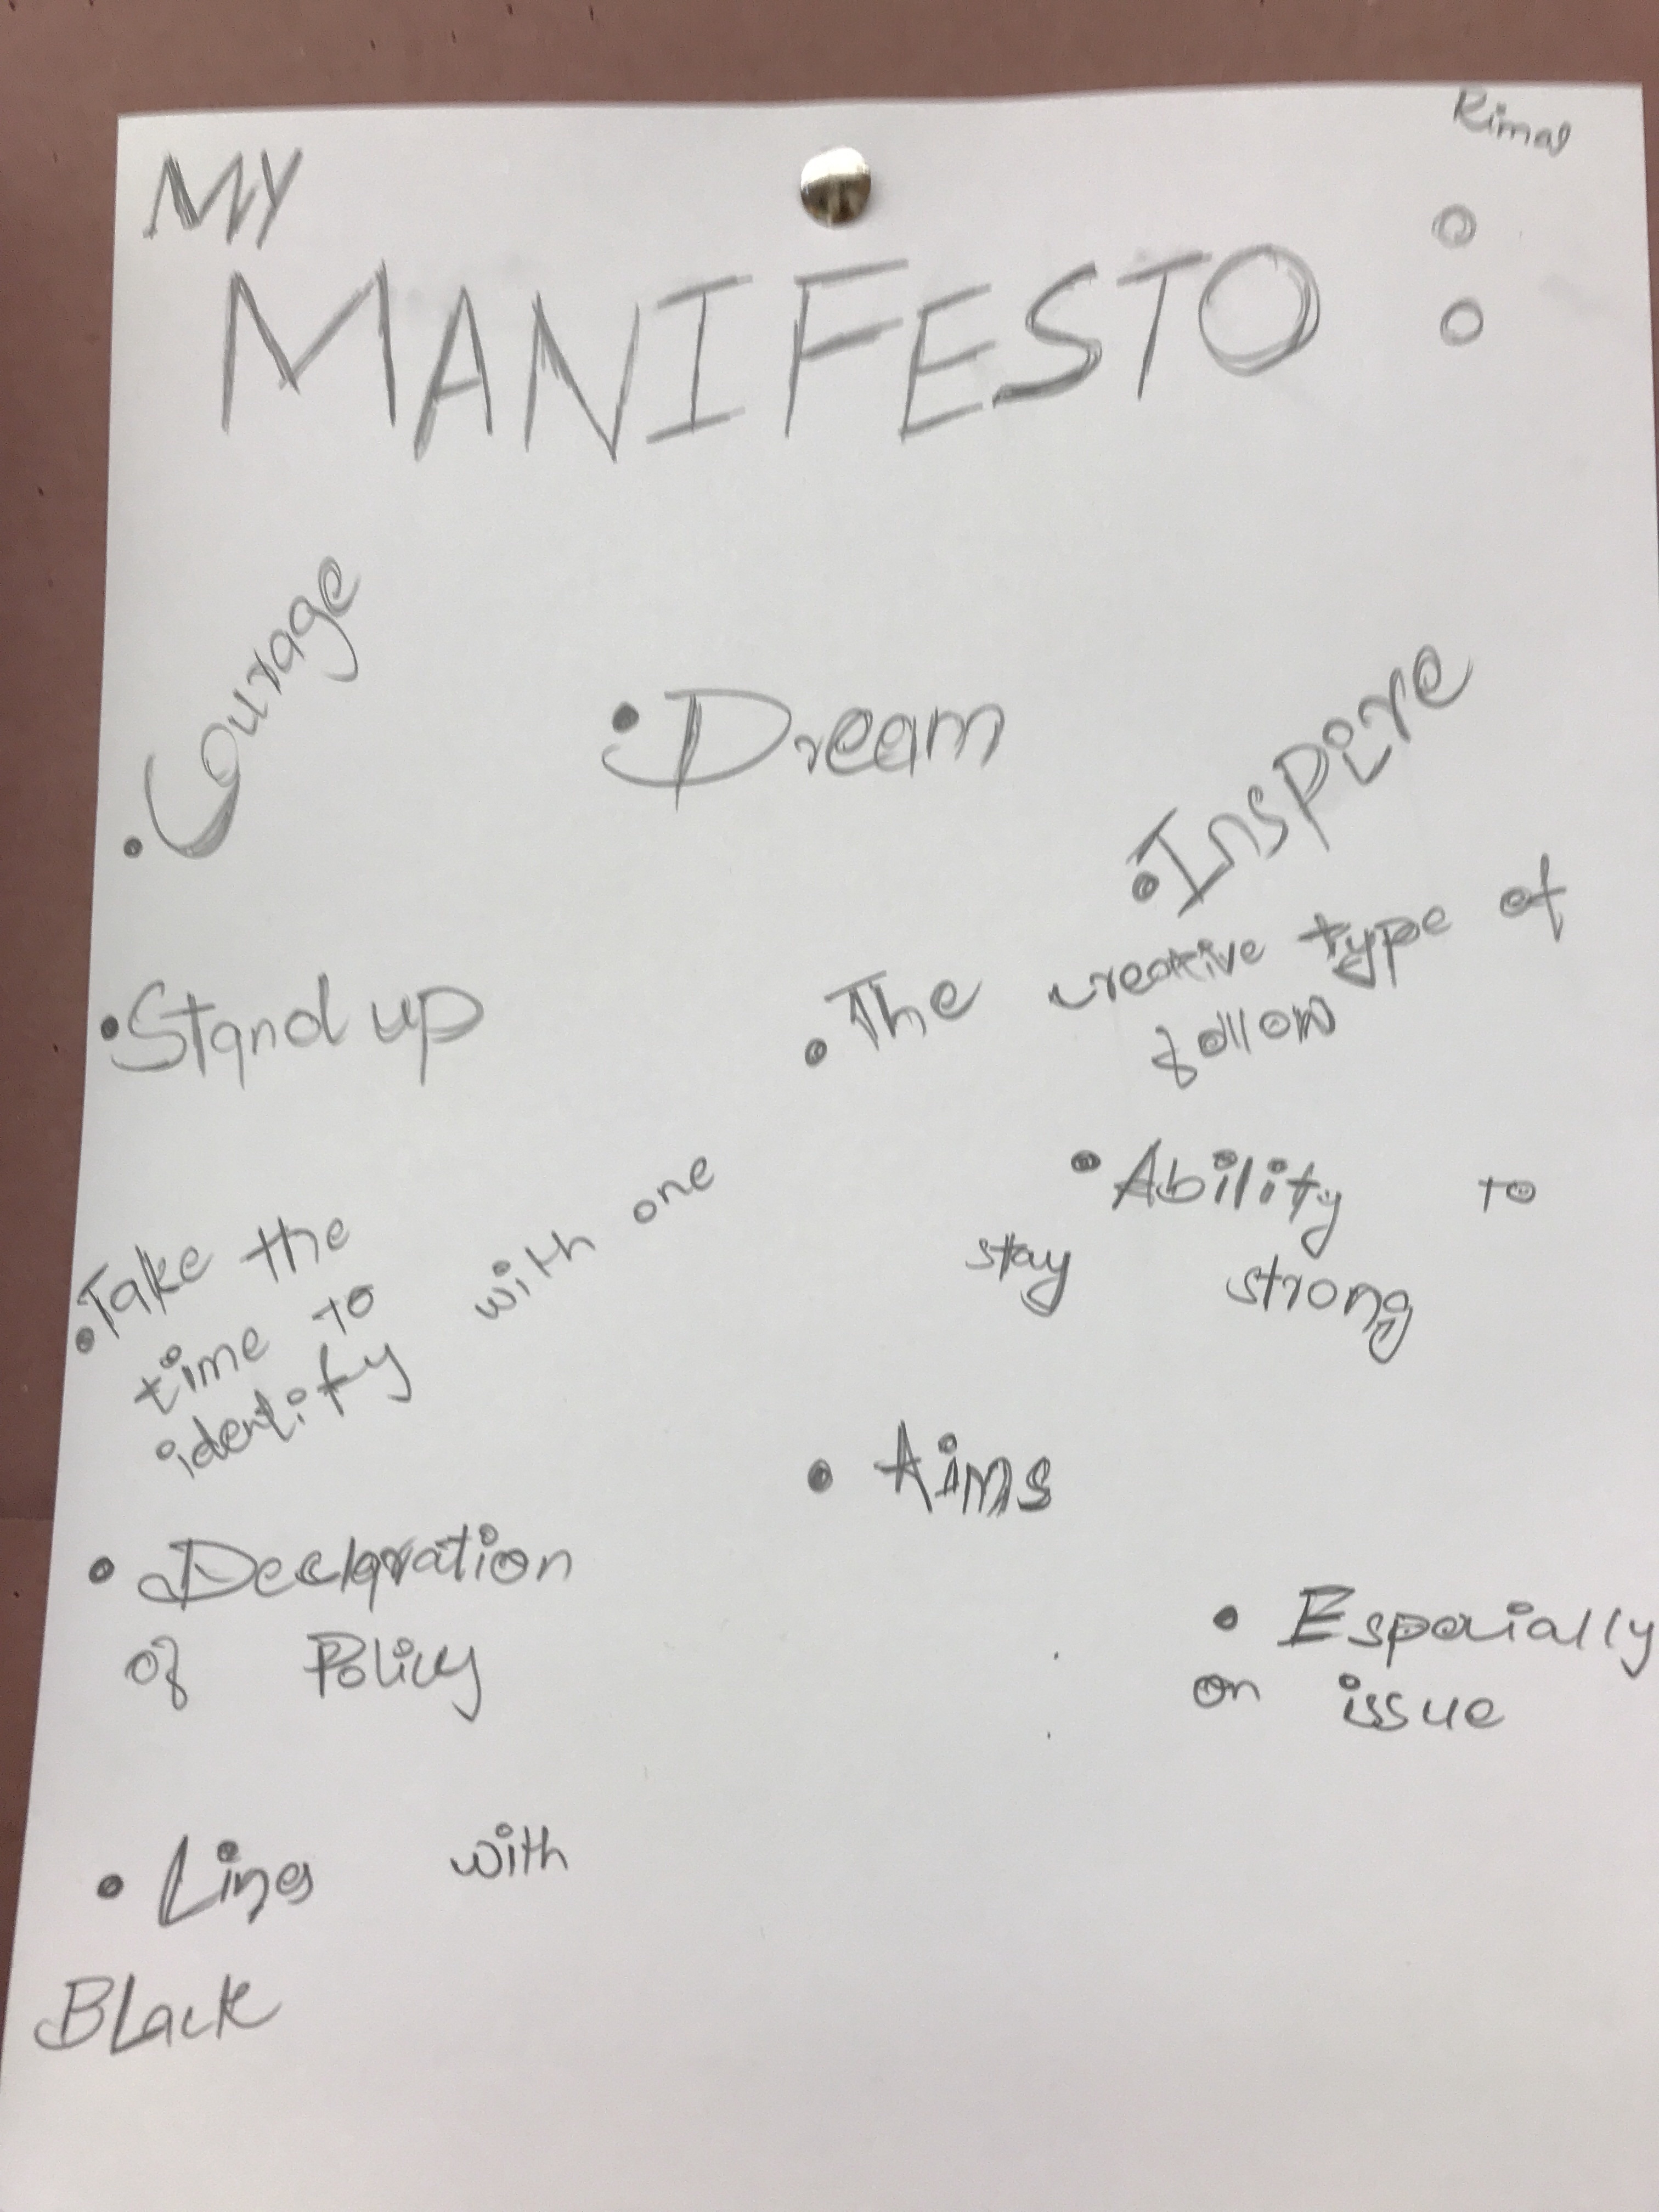 Rimal
MY
MANIFESTO :
• Courage
• Dream
• Inspire
• Stand up
• The creative type of
follow
• Take the
time to
identify with one
• Ability to
stay strong
• Aims
• Declaration
of Policy
• Especially
on issue
• Lines with
Black